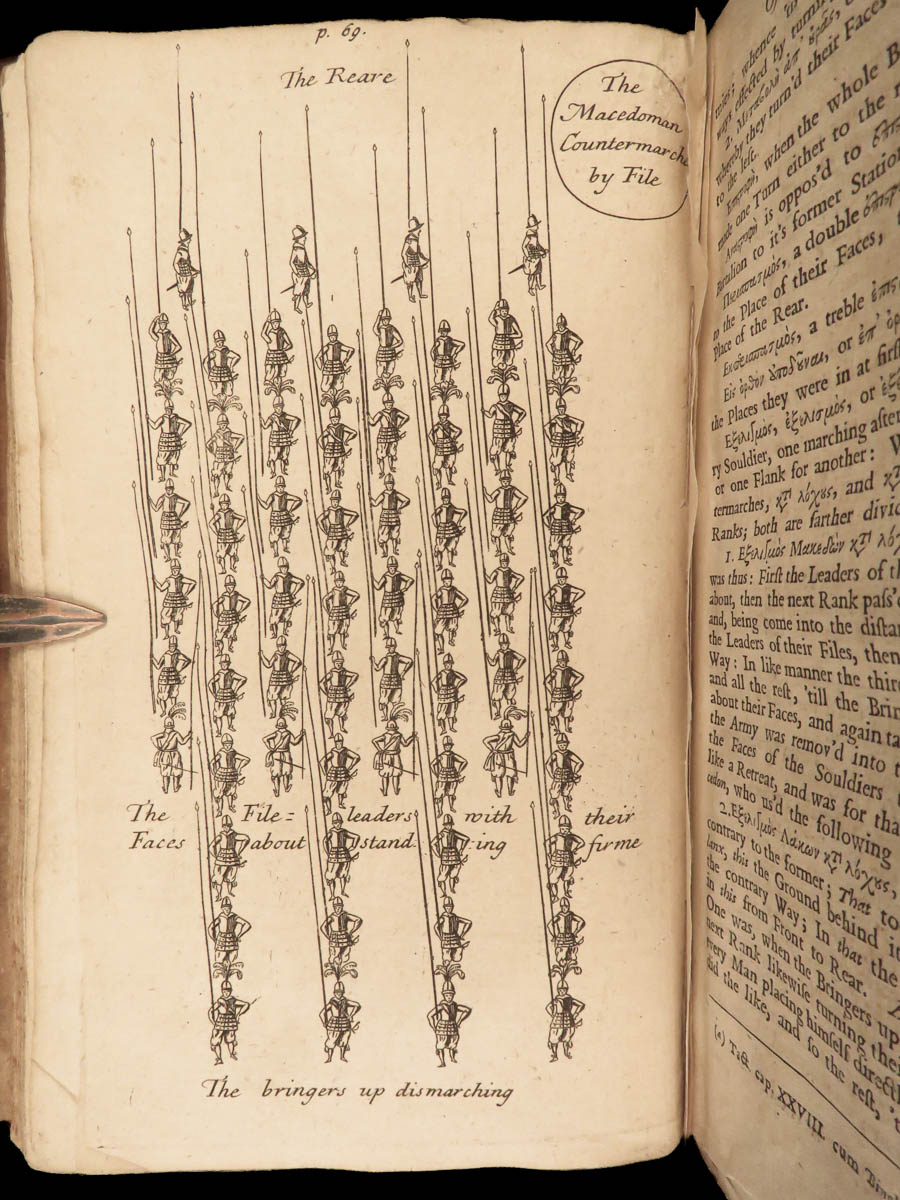 p. 69.
The Reare
The
Macedoman
Countermarche
by File
The File= leaders with their
Faces about stand :ing firme
The bringers up dismarching
whence
ways effected by turning
whereby they turn'd their Faces
to the left.
when the whole B
made one Turn either to the
is oppos'd to
to it's former Station
a double
to the Place of their Faces,
Place of the Rear.
a treble
the Places they were in at first
ry Souldier, one marching after
or one Flank for another: W
termarches, and
Ranks; both are farther divid
1. Ἐξελισμὸς Μακεδὼν
was thus: First the Leaders of th
about, then the next Rank pass'd
and, being come into the distan
the Leaders of their Files, then
Way: In like manner the third
and all the rest, 'till the Brin
about their Faces, and again ta
the Army was remov'd into t
the Faces of the Souldiers
like a Retreat, and was for that
cedon, who us'd the following
2. Ἐξελισμὸς Λάκων
contrary to the former; That to
lanx, this the Ground behind it
the contrary Way; In that the
in this from Front to Rear.
One was, when the Bringers up
next Rank likewise turning their
every Man placing himself directly
did the like, and so the rest, 't
(a) Tact. cap. XXVIII. cum